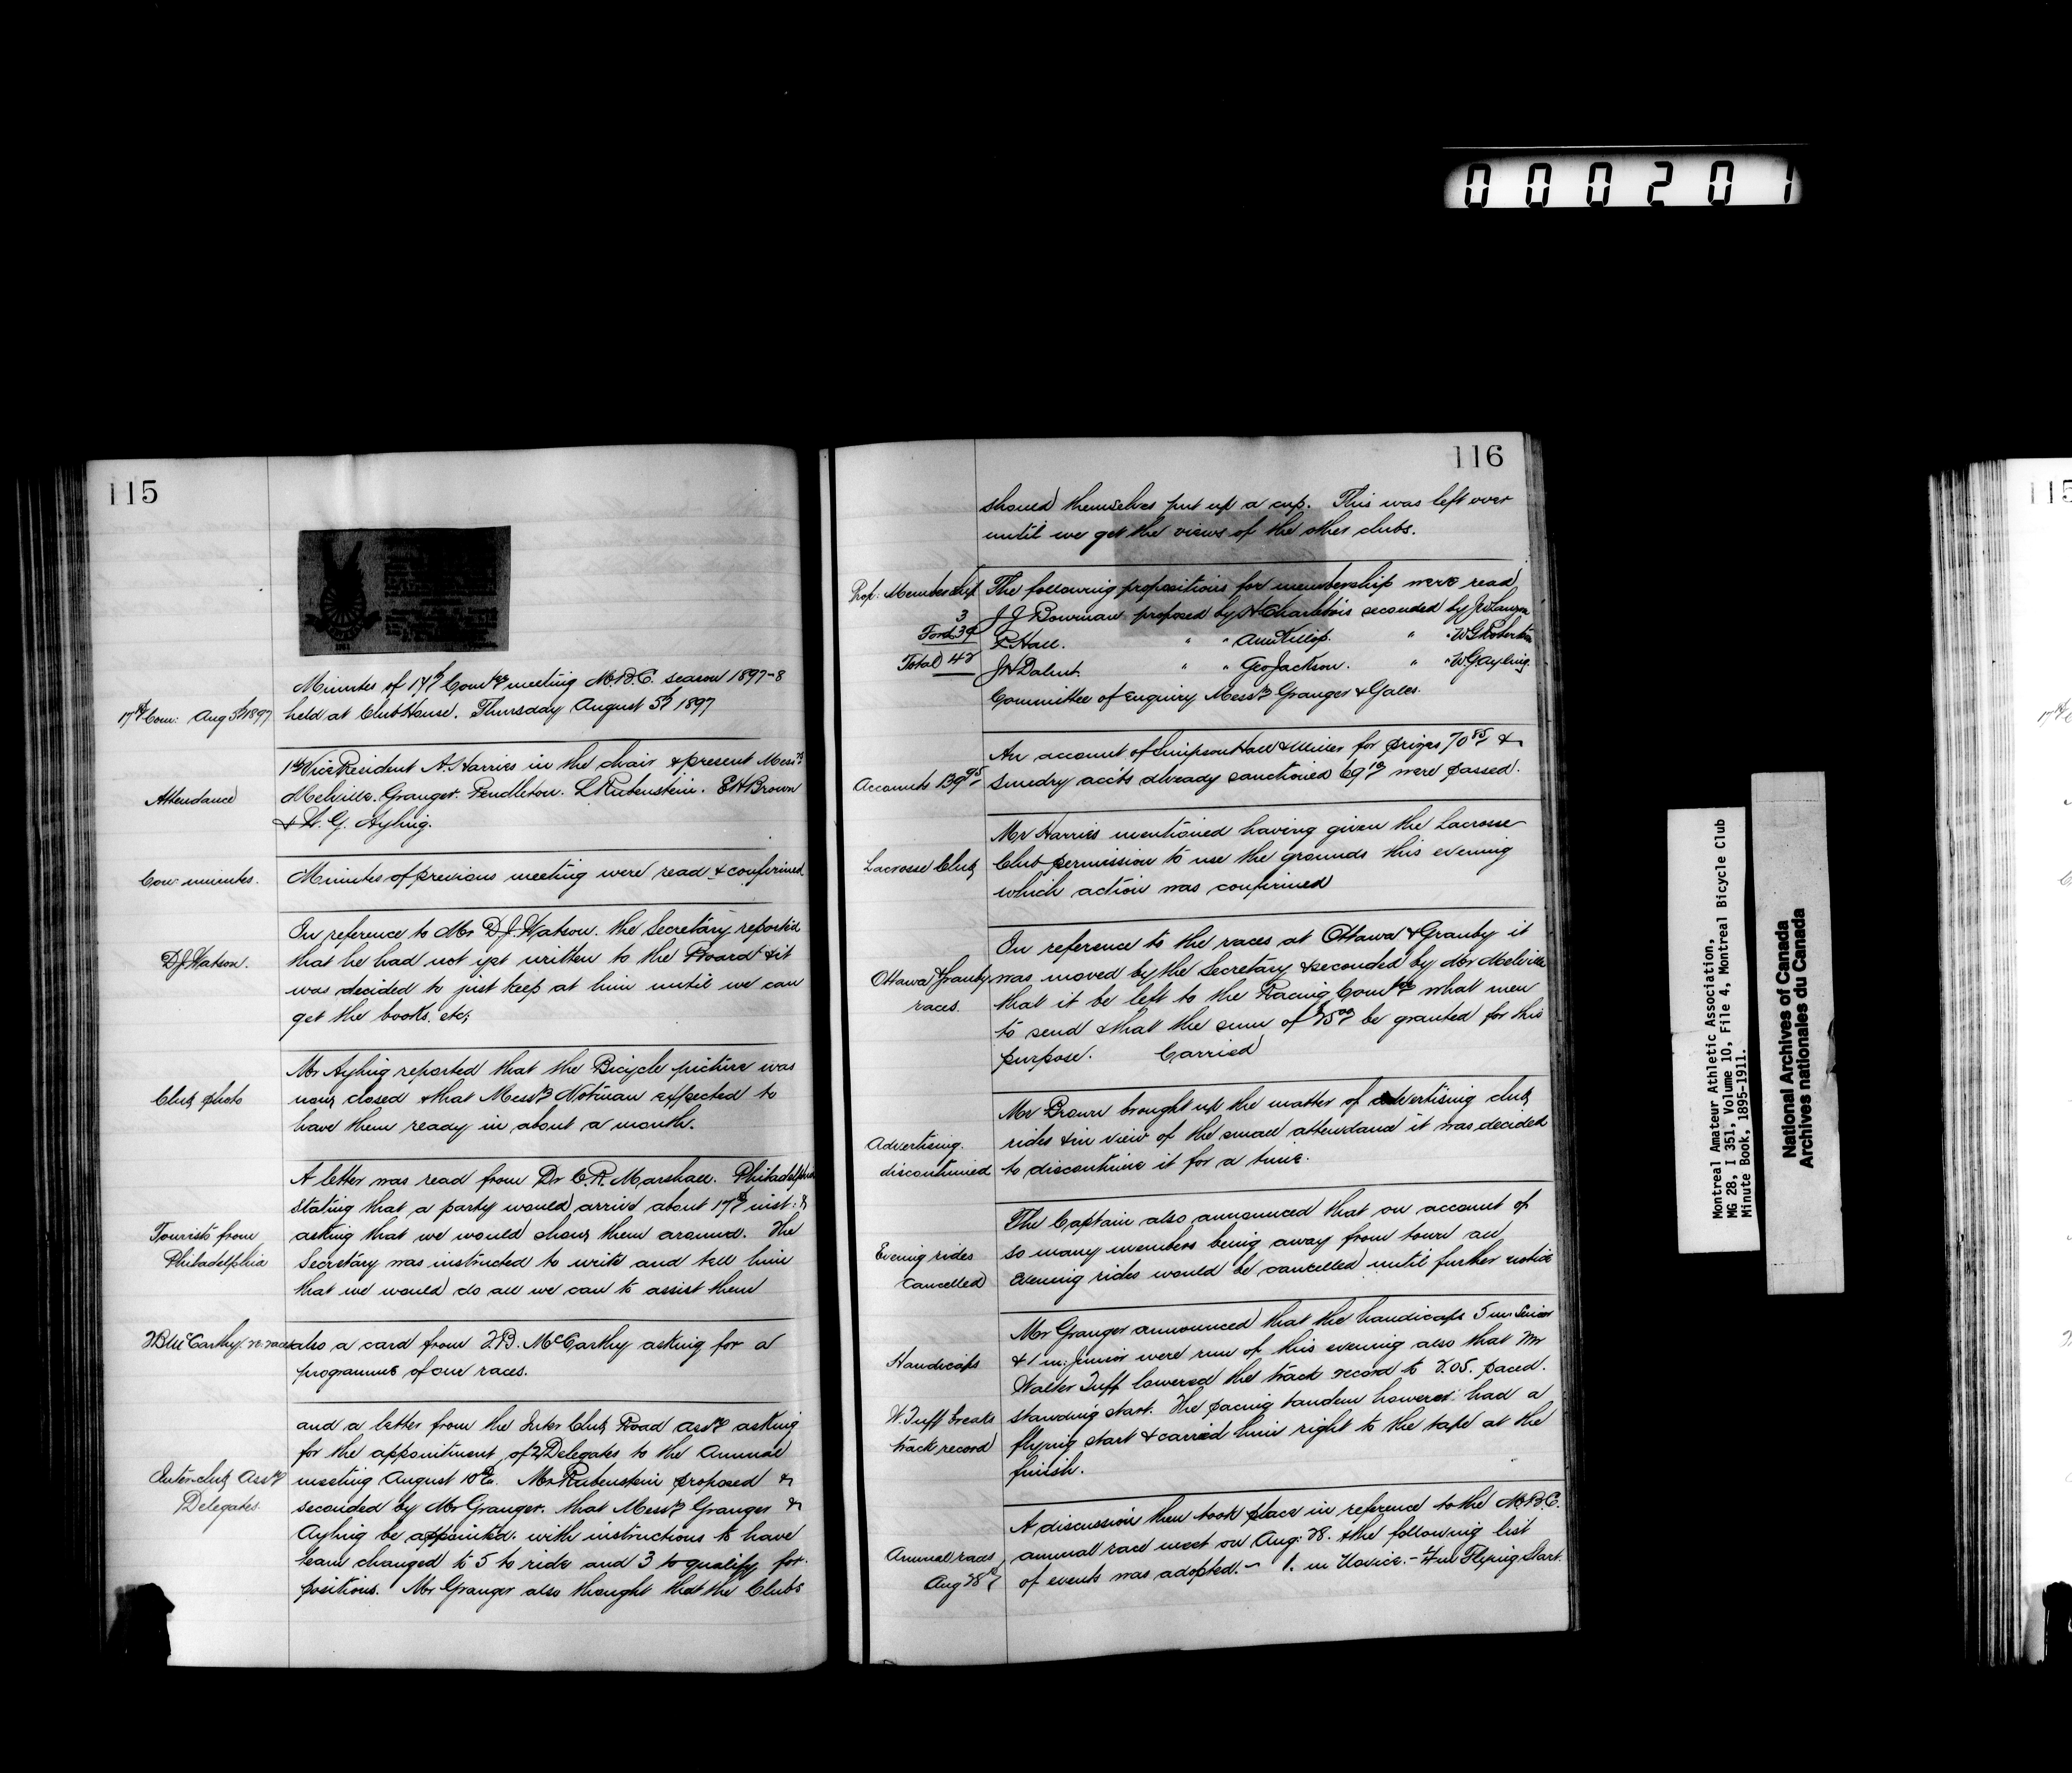 000201
115
Minutes of 17th Comtee meeting M.B.C. season 1897-8
17th Com: Aug 5th 1897 held at Club House. Thursday August 5th 1897
1st Vice President A. Harries in the chair & present Messrs
Attendance Melville. Granger. Pendleton. L Rubenstein. E H Brown
& L. G. Ayling.
Con minutes. Minutes of previous meeting were read & confirmed
In reference to Mr D.J. Watson. the Secretary reported
D J Watson. that he had not yet written to the Board & it
was decided to just keep at him until we can
get the books. etc;
Mr Ayling reported that the Bicycle picture was
Club photo now closed & that Messrs Notman expected to
have them ready in about a month.
A letter was read from Dr C. R. Marshall. Philadelphia
stating that a party would arrive about 17th inst: &
Tourists from asking that we would show them around. The
Philadelphia Secretary was instructed to write and tell him
that we would do all we can to assist them
McCarthy re races also a card from McCarthy asking for a
programme of our races.
and a letter from the Inter Club Road Assn asking
for the appointment of 2 Delegates to the Annual
Inter-club Assn meeting August 10th. Mr Rubenstein proposed &
Delegates seconded by Mr Granger. that Messrs Granger &
Ayling be appointed. with instructions to have
team changed to 5 to ride and 3 to qualify for
positions. Mr Granger also thought that the Clubs
116
should themselves put up a cup. This was left over
until we get the views of the other clubs.
Prop: Membership The following propositions for membership were read
3 J J Bowman proposed by Charlebois seconded by
Ford 39 R Hall. " " " " W G Robertson
Total 42 J H " " Geo Jackson. " " W G Ayling.
Committee of Enquiry Messrs Granger & Gales.
An account of Simpson Hall & Miller for prizes 70 85 &
Accounts 139 95 Sundry accts already sanctioned 69 10 were passed.
Mr Harries mentioned having given the Lacrosse
Lacrosse Club Club permission to use the grounds this evening
which action was confirmed
In reference to the races at Ottawa & Granby it
Ottawa & Granby was moved by the Secretary & seconded by Mr Melville
races. that it be left to the Racing Comtee what men
to send & that the sum of be granted for this
purpose. Carried
Mr Brown brought up the matter of advertising club
Advertising. rides & in view of the small attendance it was decided
discontinued to discontinue it for a time.
The Captain also announced that on account of
Evening rides so many members being away from town all
Cancelled Evening rides would be cancelled until further notice
Mr Granger announced that the handicaps 5 m. Senior
Handicaps & 1 m: Junior were run of this evening also that Mr
Walter Tuff lowered the track record to 2.05. paced.
W. Tuff breaks standing start. The pacing tandem however had a
track record flying start & carried him right to the tape at the
finish.
A discussion then took place in reference to the M.B.C.
Annual races annual race meet on Aug: 28. & the following list
Aug 28th of events was adopted. - 1. m Novice. - Flying Start.
Montreal Amateur Athletic Association,
MG 28, I 351, Volume 10, File 4, Montreal Bicycle Club
Minute Book, 1895-1911.
National Archives of Canada
Archives nationales du Canada
115